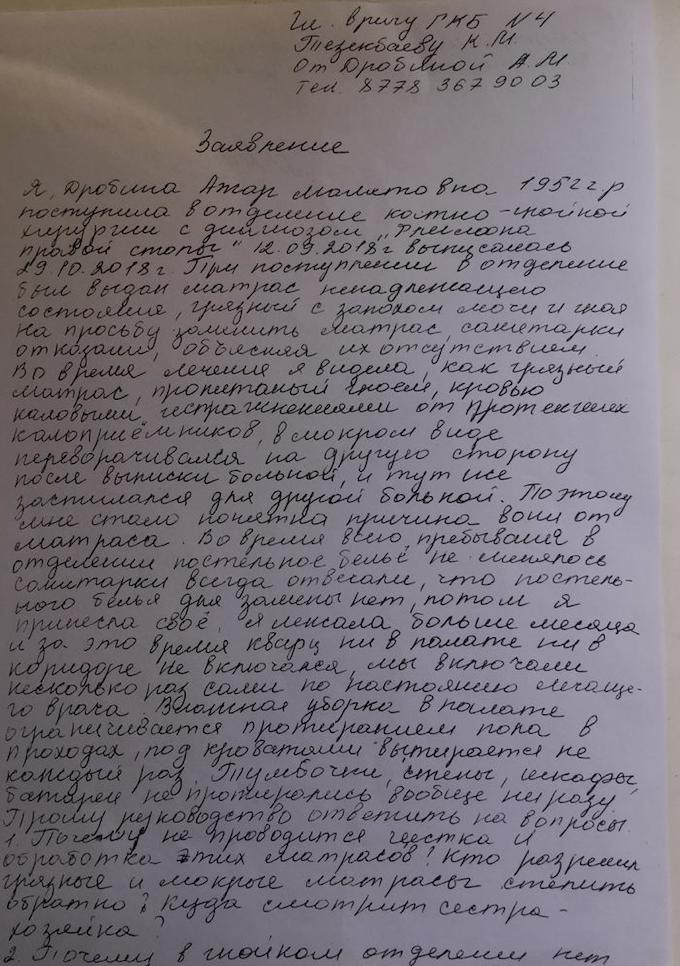 Гл. врачу ГКБ №4
Тезекбаеву К.М.
от Дробиной А.М
тел. 8778 367 90 03
Заявление
Я, Дробина Ажар Маметовна 1952 г.р
поступила в отделение костно-гнойной
хирургии с диагнозом „Флегмона
правой стопы" 12.09.2018г выписалась
29.10.2018г. При поступлении в отделение
был выдан матрас ненадлежащего
состояния, грязный с запахом мочи и гноя
на просьбу заменить матрас, санитарки
отказали, объясняя их отсутствием.
Во время лечения я видела, как грязный
матрас, пропитаный гноем, кровью
каловыми, испражнениями от протекших
калоприёмников, в мокром виде
переворачивался на другую сторону
после выписки больной, и тут же
застилался для другой больной. Поэтому
мне стало понятна причина вони от
матраса. Во время всего, пребывания в
отделении постельное бельё не менялось
санитарки всегда отвечали, что постель-
ного белья для замены нет, потом я
принесла своё. Я лежала больше месяца
и за это время кварц ни в палате ни в
коридоре не включался, мы включали
несколько раз сами по настоянию лечаще-
го врача. Влажная уборка в палате
ограничивается протиранием пола в
проходах, под кроватями вытирается не
каждый раз. Тумбочки, стены, шкафы,
батареи не протирались вообще ни разу.
Прошу руководство ответить на вопросы.
1. Почему не проводится чистка и
обработка этих матрасов? Кто разрешил
грязные и мокрые матрасы стелить
обратно? Куда смотрит сестра-
хозяйка?
2. Почему в гнойном отделении нет